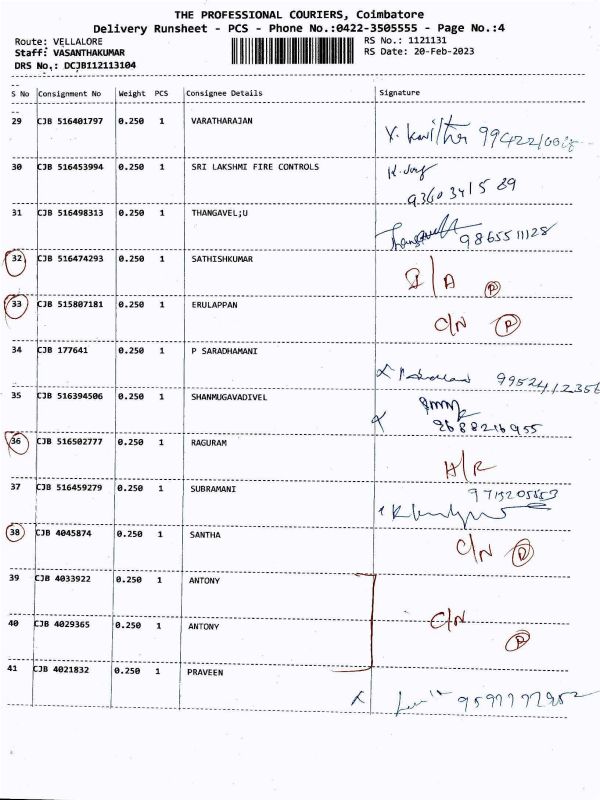 THE PROFESSIONAL COURIERS, Coimbatore
Delivery Runsheet - PCS - Phone No.:0422-3505555 - Page No.:4
Route: VELLALORE RS No.: 1121131
Staff: VASANTHAKUMAR RS Date: 20-Feb-2023
DRS No.: DCJB112113104
S No Consignment No Weight PCS Consignee Details Signature
29 CJB 516401797 0.250 1 VARATHARAJAN
30 CJB 516453994 0.250 1 SRI LAKSHMI FIRE CONTROLS
9360341589
31 CJB 516498313 0.250 1 THANGAVEL;U
9865511128
32 CJB 516474293 0.250 1 SATHISHKUMAR
I/A P
33 CJB 515807181 0.250 1 ERULAPPAN
C/N P
34 CJB 177641 0.250 1 P SARADHAMANI
9952412356
35 CJB 516394506 0.250 1 SHANMUGAVADIVEL
36 CJB 516502777 0.250 1 RAGURAM
H/R
37 CJB 516459279 0.250 1 SUBRAMANI
38 CJB 4045874 0.250 1 SANTHA
C/N P
39 CJB 4033922 0.250 1 ANTONY
40 CJB 4029365 0.250 1 ANTONY
C/N P
41 CJB 4021832 0.250 1 PRAVEEN